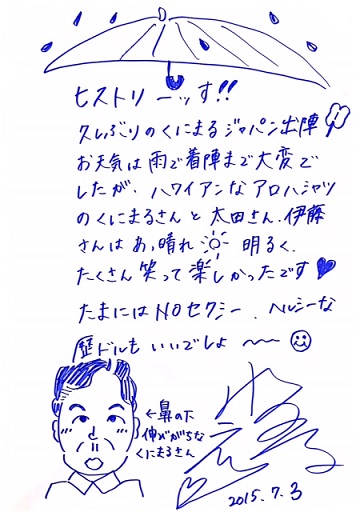 ヒストリーッす!!
久しぶりのくにまるジャパン出陣
お天気は雨で着陣まで大変で
したが、ハワイアンなアロハシャツ
のくにまるさんと太田さん、伊藤
さんはあ、晴れ 明るく、
たくさん笑って楽しかったです
たまにはNOセクシー、ヘルシーな
歴ドルもいいでしょ〜〜
←鼻の下
伸びがちな
くにまるさん
2015.7.3